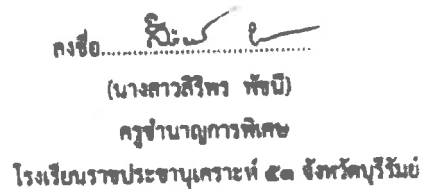 ลงชื่อ
(นางสาวสิริพร พัชนี)
ครูชำนาญการพิเศษ
โรงเรียนราชประชานุเคราะห์ ๕๑ จังหวัดบุรีรัมย์